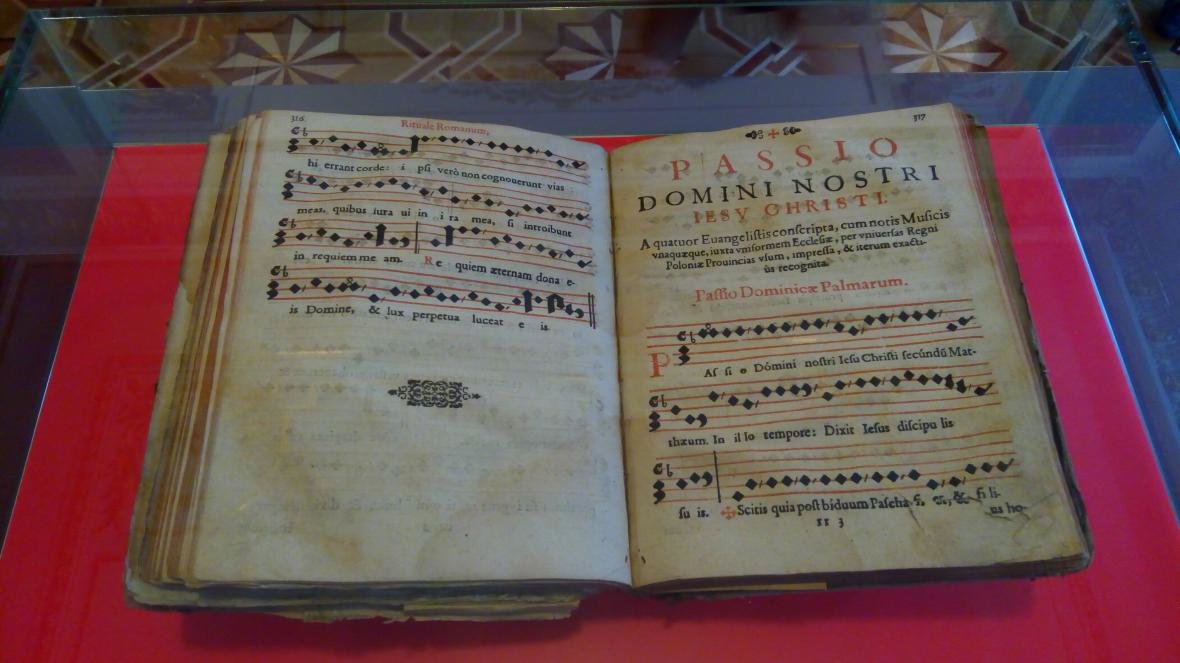 316
Rituale Romanum,
hi errant corde: i psi verò non cognouerunt vias
meas, quibus iura ui in i ra mea, si introibunt
in requiem me am. Re quiem æternam dona e-
is Domine, & lux perpetua luceat e is
317
PASSIO
DOMINI NOSTRI
IESV CHRISTI.
A quatuor Euangelistis conscripta, cum notis Musicis
vnaquæque, iuxta vniformem Ecclesiæ, per vniuersas Regni
Poloniæ Prouincias vsum, impressa, & iterum exacti-
ùs recognita.
Passio Dominicæ Palmarum.
PAs si o Dómini nostri Iesu Christi secúndũ Mat-
thæum. In il lo tempore: Dixit Iesus discipu lis
su is. ✠ Scitis quia post biduum Pascha & fi li-
us ho-